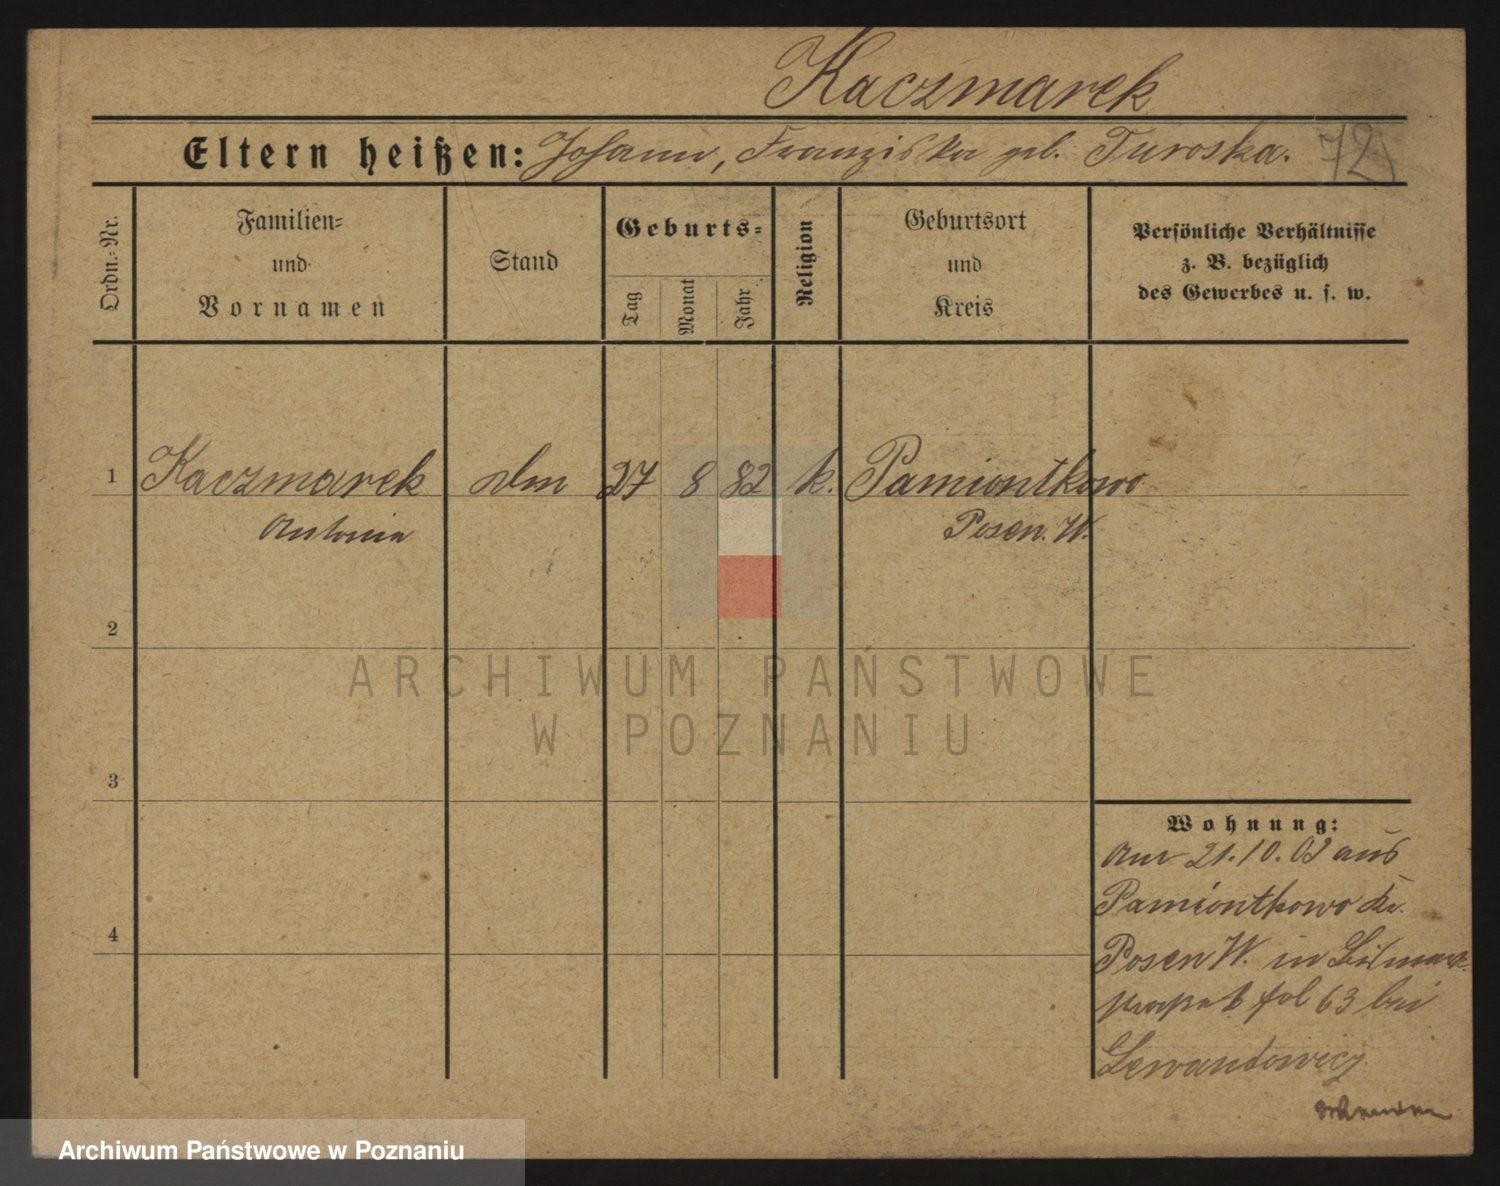 Kaczmarek
Eltern heißen: Johann, Franziska geb. Turoska. 72
Ordn.-Nr.
Familien-
und
Vornamen
Stand
Geburts-
Tag
Monat
Jahr
Religion
Geburtsort
und
Kreis
Persönliche Verhältnisse
z. B. bezüglich
des Gewerbes u. s. w.
1 Kaczmarek 27 8 82 k. Pamiontkowo
Antonie Posen. W.
2
ARCHIWUM PAŃSTWOWE
W POZNANIU
3
Wohnung:
Am 21.10.02 aus
Pamiontkowo Kr.
4
Posen W. in Bismarck
fol 63 bei
Lewandowicz
Archiwum Państwowe w Poznaniu